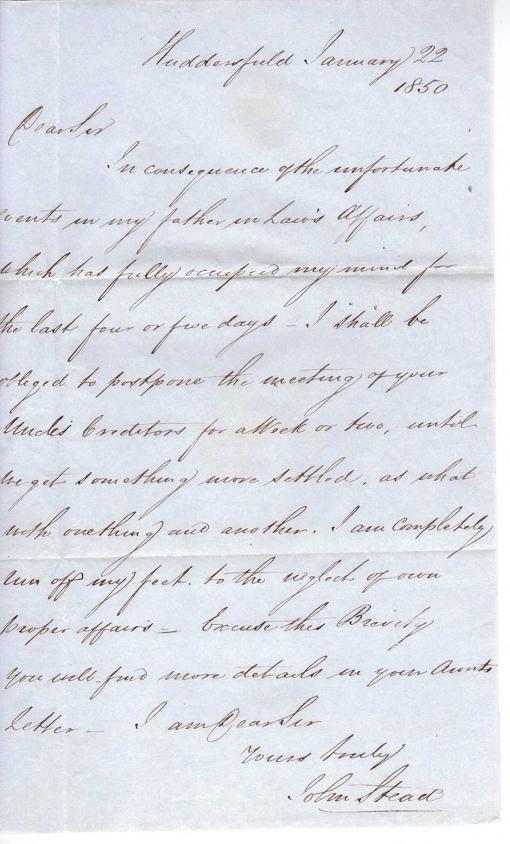 Huddersfield January 22
1850
Dear Sir
In consequence of the unfortunate
events in my father in Law's Affairs,
which has fully occupied my mind for
the last four or five days – I shall be
obliged to postpone the meeting of your
Uncles Creditors for a Week or two, until
we get something more settled, as what
with one thing and another. I am completely
run off my feet. to the neglect of own
proper affairs – Excuse this Brevity
you will find more details in your Aunts
Letter – I am Dear Sir
Yours truly
John Stead